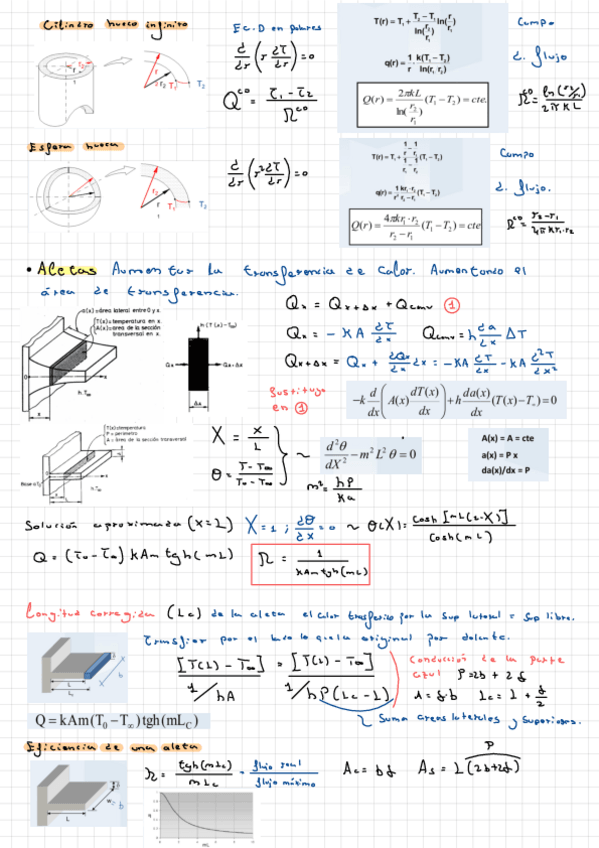 Cilindro hueco infinito
Ec. D en polares
d/dr (r dT/dr) = 0
Q^co = (T₁ - T₂)/R^co
T(r) = T₁ + (T₂ - T₁)/ln(r₂/r₁) ln(r/r₁)
q(r) = 1/r · k(T₁ - T₂)/ln(r₂/r₁)
Q(r) = 2πkL/ln(r₂/r₁) (T₁ - T₂) = cte.
Campo
d. flujo
R^co = ln(r₂/r₁)/2πKL
Esfera hueca
d/dr (r² dT/dr) = 0
Campo
d. flujo.
Q(r) = 4πkr₁·r₂/(r₂ - r₁) (T₁ - T₂) = cte
R^co = (r₂ - r₁)/4πKr₁·r₂
• Aletas Aumentar la transferencia de calor. Aumentando el
área de transferencia.
a(x)=área lateral entre 0 y x.
T(x)=temperatura en x
A(x)=area de la sección
transversal en x.
h (T(x)-T∞)
Qx
Qx+Δx
Δx
h, T∞
Qx = Qx+Δx + Qconv ①
Qx = -KA dT/dx Qconv = h da/dx ΔT
Qx+Δx = Qx + dQx/dx dx = -KA dT/dx - KA d²T/dx²
Sustituyo
en ①
-k d/dx (A(x) dT(x)/dx) + h da(x)/dx (T(x) - T∞) = 0
T(x)=temperatura
P = perímetro
A = área de la sección trasversal
X = x/L
θ = (T - T∞)/(T₀ - T∞)
~ d²θ/dX² - m²L²θ = 0
m² = hP/Ka
A(x) = A = cte
a(x) = P x
da(x)/dx = P
Solución aproximada (x=L) X=1 ; dθ/dx = 0 ~ θ(X) = Cosh [mL(1-X)]/Cosh(mL)
Q = (T₀ - T∞) kAm tgh(mL)
R = 1/(kAm tgh(mL))
Longitud corregida (Lc) de la aleta el calor trasferido por la sup lateral = sup libre.
Transfier por el lado lo q la original por delante.
[T(L) - T∞]/(1/hA) = [T(L) - T∞]/(1/hP(Lc - L))
Conducción de la parte
azul P=2b + 2δ
A = δ·b Lc = L + δ/2
Suma areas laterales y superiores.
Q = kAm(T₀ - T∞) tgh(mL_C)
Eficiencia de una aleta
n = tgh(mLc)/mLc = flujo real/flujo máximo
Ac = bδ As = L(2b+2δ)
P
mL